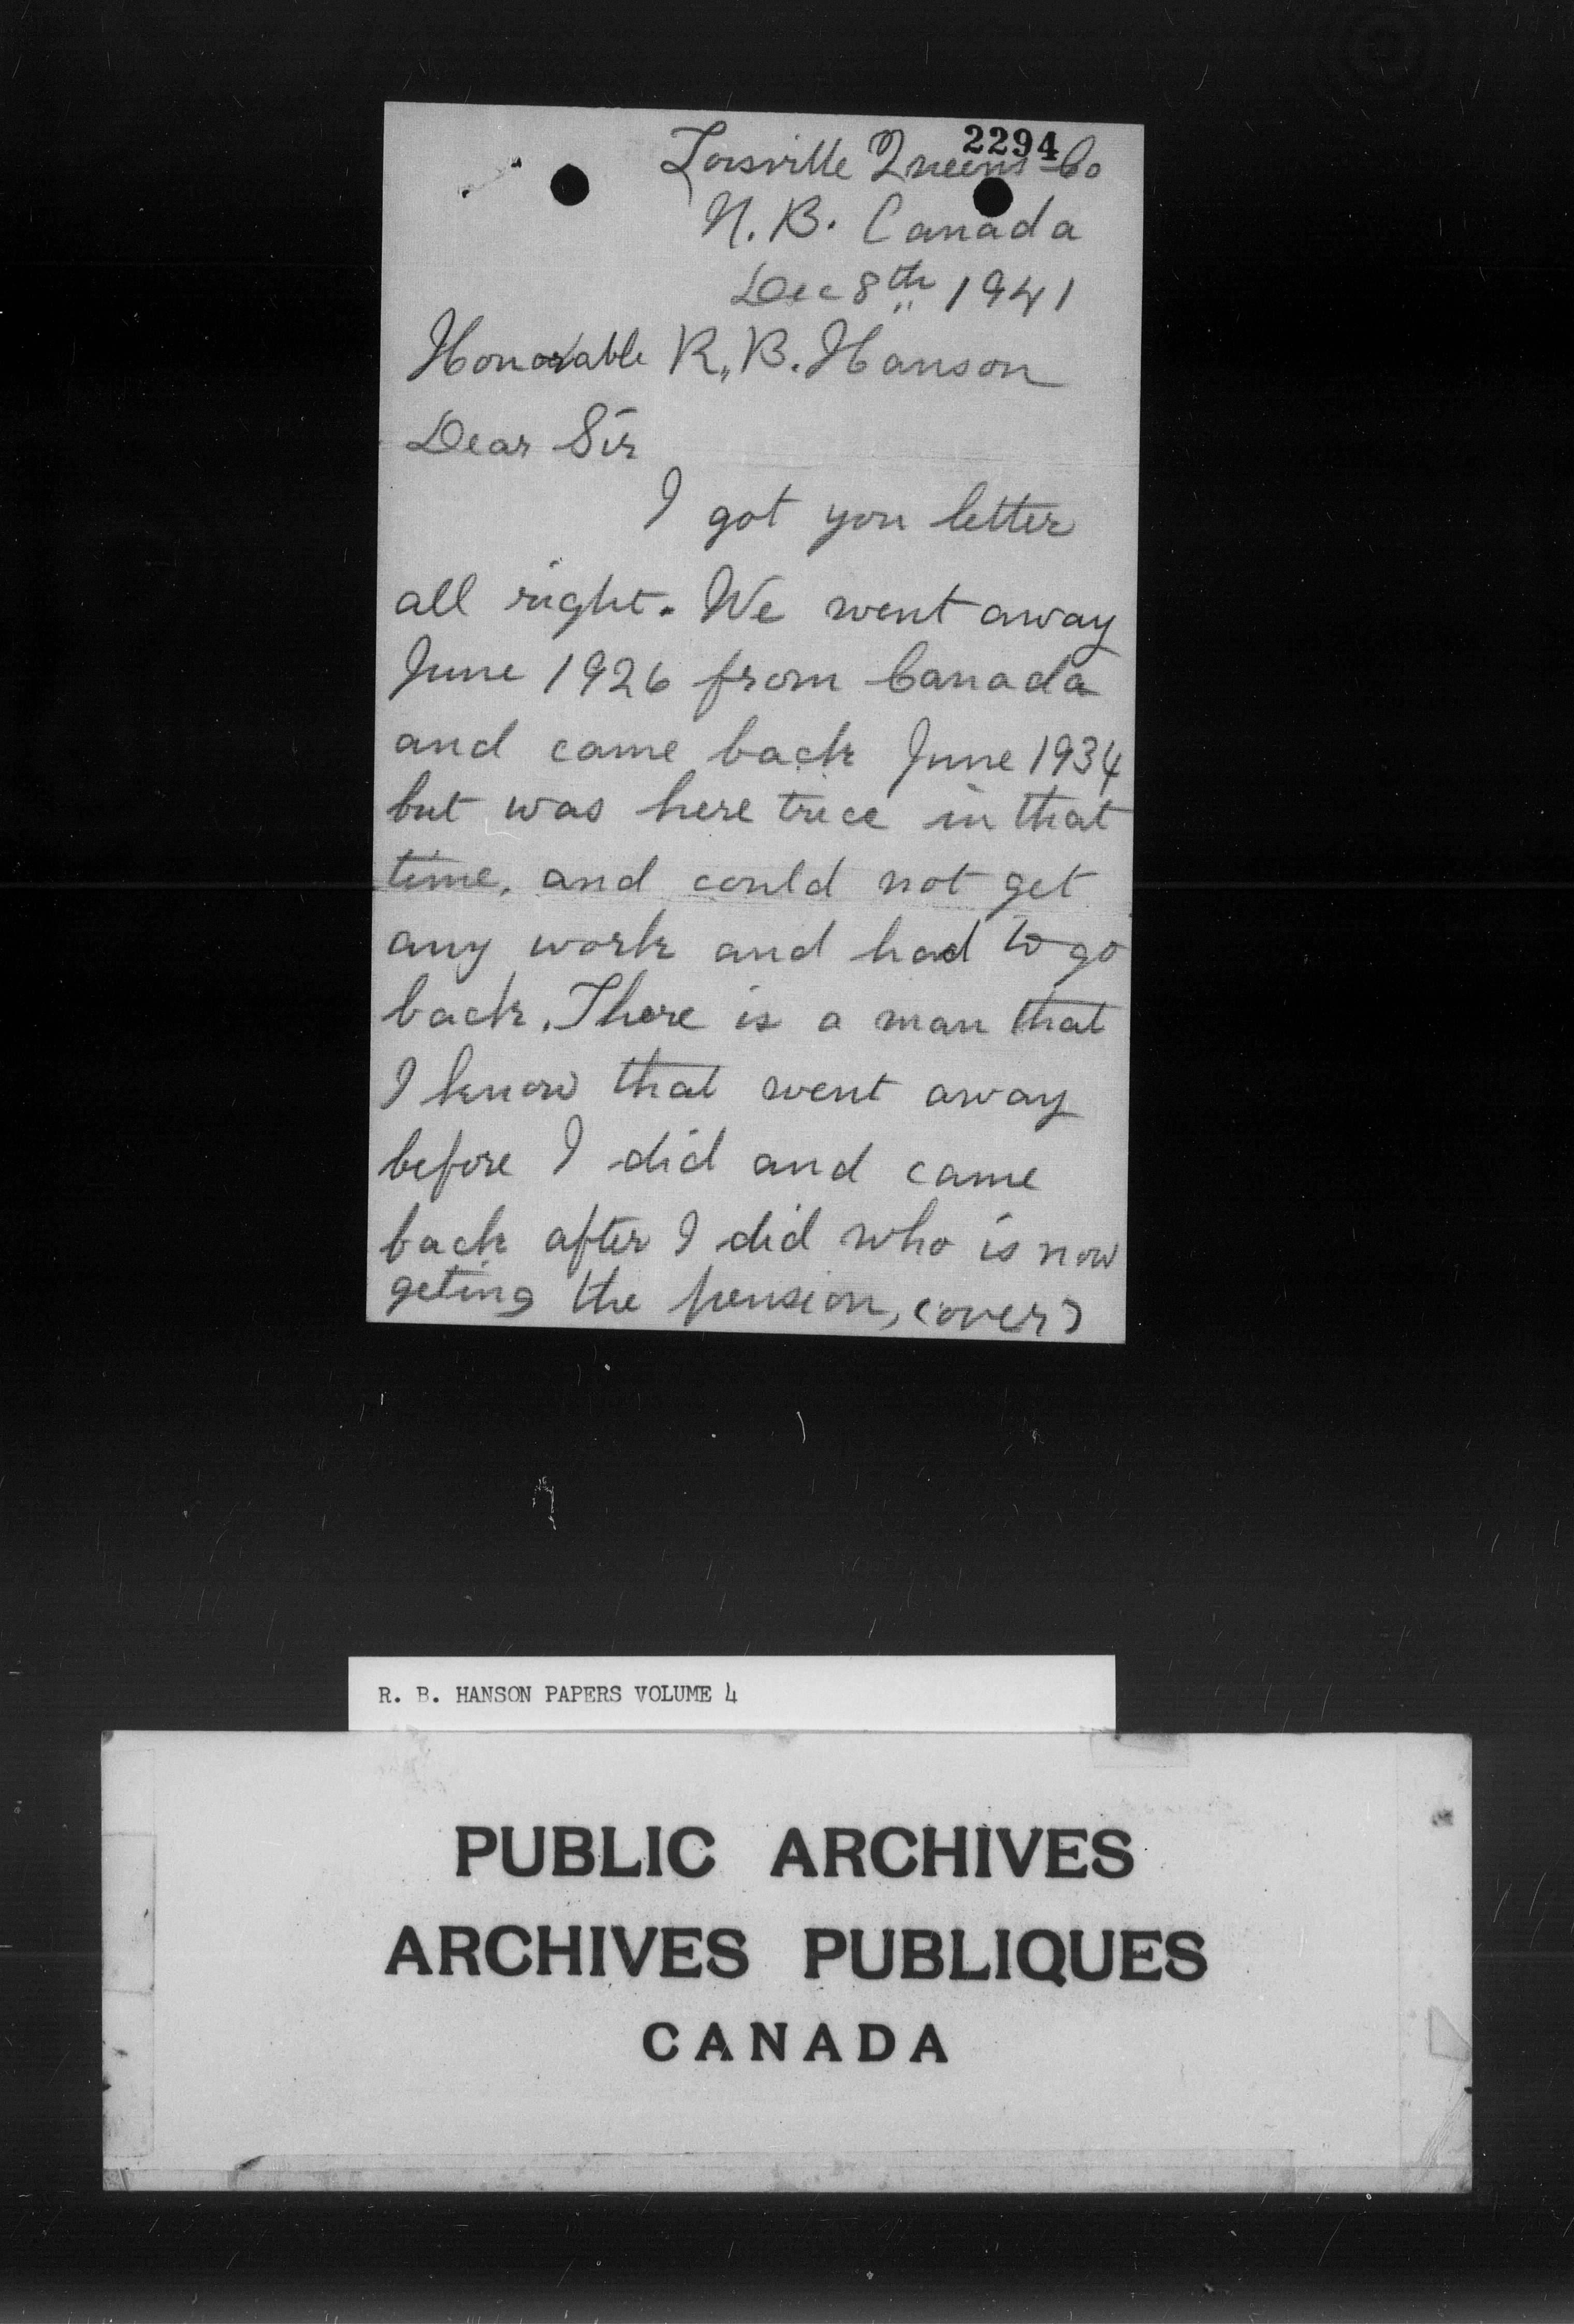 2294
Loisville Queens Co
N. B. Canada
Dec 8th 1941
Honorable R. B. Hanson
Dear Sir
I got you letter
all right. We went away
June 1926 from Canada
and came back June 1934
but was here trice in that
time, and could not get
any work and had to go
back. There is a man that
I know that went away
before I did and came
back after I did who is now
geting the pension, (over)
R. B. HANSON PAPERS VOLUME 4
PUBLIC ARCHIVES
ARCHIVES PUBLIQUES
CANADA